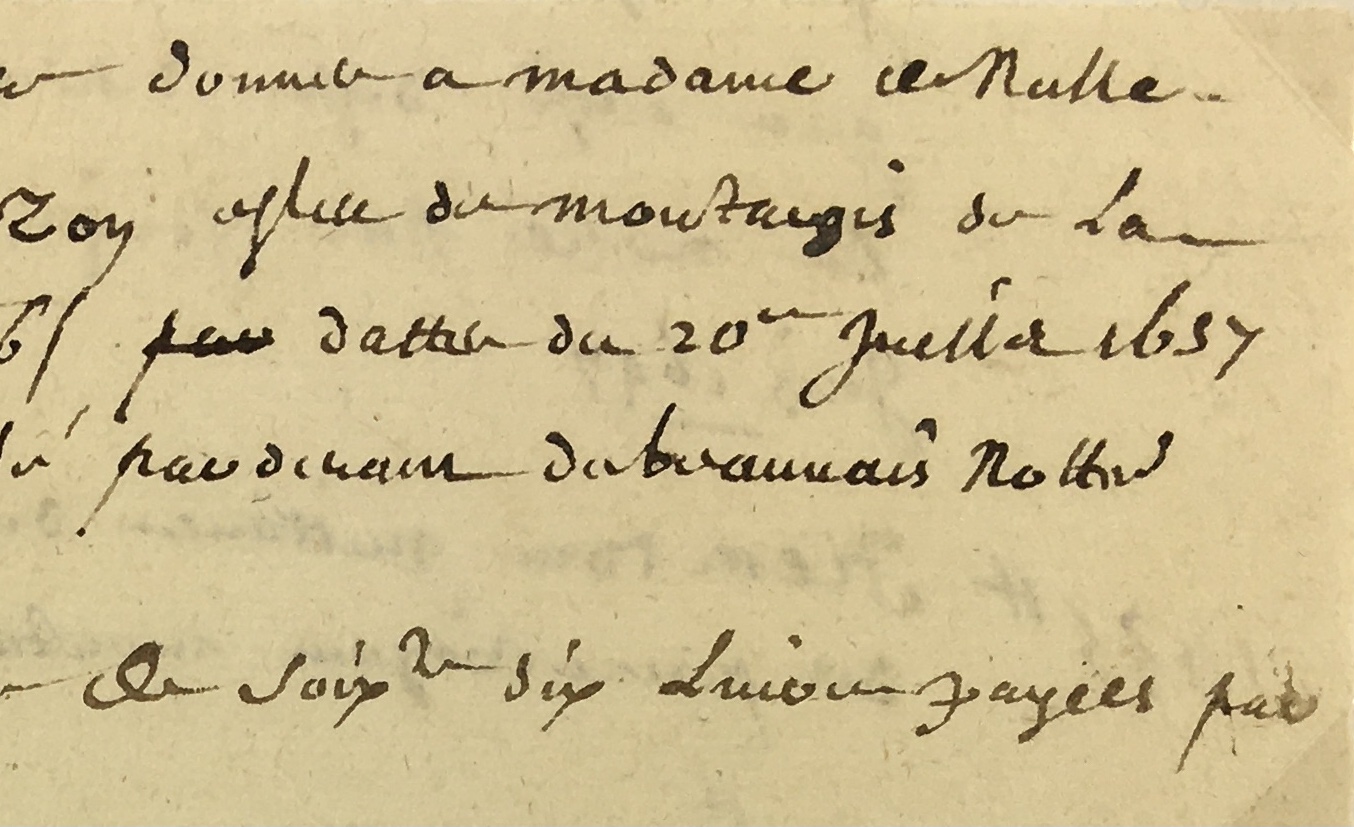 donner a madame de Nulle
Roy esleu de montargis de La
par datte du 20me Juillet 1657
pardevant debeauvais Nottre
de soixte dix Livres payees par